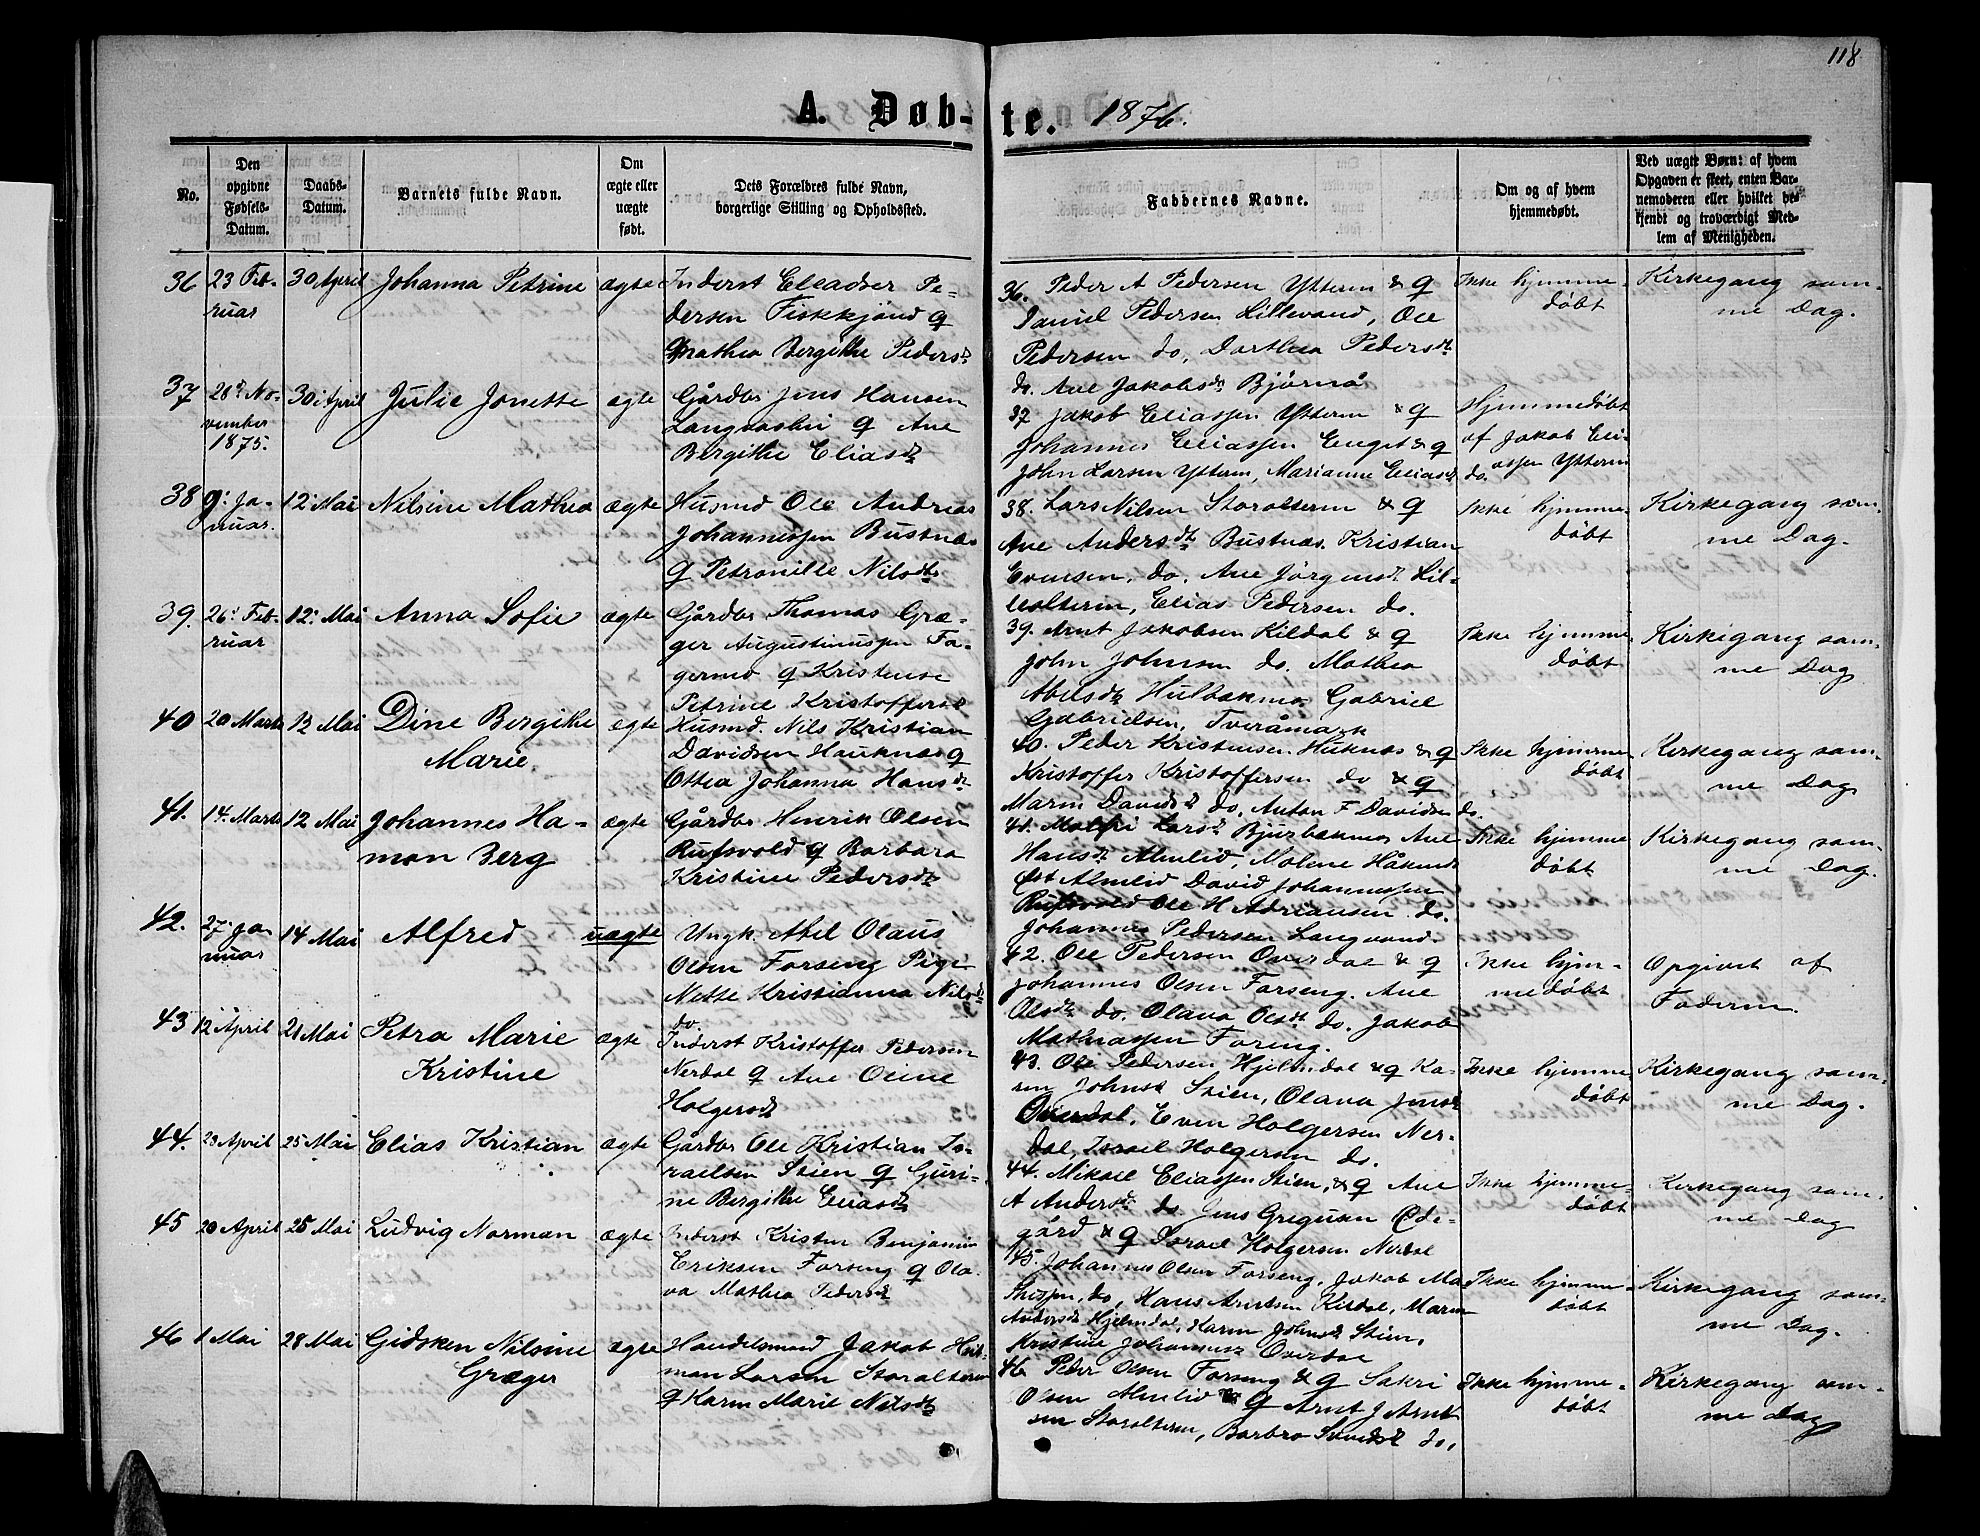 118
A. Døb-te. 1876.
No.
Den opgivne Fødsels-Datum.
Daabs-Datum.
Barnets fulde Navn.
Om ægte eller uægte født.
Dets Forældres fulde Navn, borgerlige Stilling og Opholdssted.
Faddernes Navne.
Om og af hvem hjemmedøbt.
Ved uægte Børn: af hvem Opgaven er skeet, enten Barnemoderen eller hvilket bekjendt og troværdigt Medlem af Menigheden.
36 23 Feb-
ruar
30 April
Johanna Petrine
ægte
Inderst Eleadser Pe-
dersen Fiskkjønd &
Mathea Bergithe Pedersdtr
36. Peder A Pedersen Ytteren & &
Daniel Pedersen Lillevand, Ole
Pedersen do, Dorthea Pedersdtr
do. Ane Jakobsdtr Bjørnå
Ikke hjemme-
døbt
Kirkegang sam-
me Dag.
37 28de No-
vember
1875.
30 April
Julie Jonette
ægte
Gårdbr Jens Hansen
Langvashei & Ane
Bergithe Eliasdtr
37 Jakob Eliassen Ytteren & &
Johannes Eliassen Enget & &
John Larsen Ytteren, Marianne Eliasdtr do.
Hjemmedøbt
af Jakob Eli-
assen Ytteren
38 9: Ja-
nuar.
12: Mai
Nilsine Mathea
ægte
Husmd Ole Andreas
Johannessen Bustnæs
& Petronille Nilsdtr
38. Lars Nilsen Storalteren & &
Ane Andersdtr Bustnæs. Kristian
Evensen, do, Ane Jörgensdtr Lil-
lealteren, Elias Pedersen do.
Ikke hjemme
døbt
Kirkegang sam-
me Dag.
39. 26: Feb-
ruar
12: Mai
Anna Sofie
ægte
Gårdbr Thomas Græ-
ger Augustinussen Fa-
germo & Kristense
Petrine Kristoffersdtr
39. Arnt Jakobsen Kildal & &
John Johnsen do. Mathea
Abelsdtr Hulbækmo Gabriel
Gabrielsen, Tveråmark
Ikke hjemme
døbt
Kirkegang sam-
me Dag
40 20 Marts
12 Mai
Dine Bergithe
Marie.
ægte
Husmd. Nils Kristian
Davidsen Hauknæs &
Ottea Johanna Hansdtr
40. Peder Kristensen Huknæs & &
Kristoffer Kristoffersen do & &
Maren Davidsdtr do, Anton F Davidsen do.
Ikke hjemme
døbt
Kirkegang sam-
me Dag
41. 14: Marts
12 Mai
Johannes Ha-
man Berg
ægte
Gårdbr Henrik Olsen
Rufsvold & Barbara
Kristine Pedersdtr
41. Malfri Larsdtr Bjurbækmo, Ane
Hansdtr Almlid, Nolene Håkens
dtr Almlid David Johannessen
Rufsvold Ole H Adriansen do.
Johannes Pedersen Langvand.
Ikke hjemme
døbt
Kirkegang sam-
me Dag.
42. 27 Ja-
nuar
14 Mai
Alfred
uægte
Ungk. Abel Olaus
Olsen Forseng Pige
Nette Kristianna Nilsdtr
do.
42. Ole Pedersen Overdal & &
Johannes Olsen Forseng. Ane
Olsdtr do. Olava Olsdtr do. Jakob
Mathiassen Foreng.
Ikke hjem-
medøbt
Opgivet af
Faderen.
43 12 April
21 Mai
Petra Marie
Kristine
ægte
Inderst Kristoffer Pedersen
Nerdal & Ane Oline
Holgersdtr
43. Ole Pedersen Hjelmdal & & Ka-
ren Johnsdtr Stien, Olava Jensdtr
Overdal, Even Holgersen Ner-
dal, Israel Holgersen do.
Ikke hjemme
døbt
Kirkegang sam-
me Dag.
44. 23 April
25 Mai
Elias Kristian
ægte
Gårdbr Ole Kristian Is-
raelsen Stien & Guri-
ne Bergithe Eliasdtr
44. Mikael Eliassen Stien, & & Ane
A Andersdtr do Jens Gregusen Øde-
gård & & Israel Holgersen Nerdal
Ikke hjemme-
døbt
Kirkegang sam-
me Dag
45 20 April
25 Mai
Ludvig Norman
ægte
Inderst Kristen Benjamin
Eriksen Forseng & Ola-
va Mathea Pedersdtr
45. Johannes Olsen Forseng, Jakob Ma
thissen, do, Hans Arntsen Kildal, Maren
Andersdtr Hjelmdal, Karen Johnsdtr Stien,
Kristine Johannesdtr Overdal
Ikke hjemme
døbt
Kirkegang sam-
me Dag.
46 1 Mai
28 Mai
Gidsken Nilsine
Græger
ægte
Handelsmand Jakob Heit-
man Larsen Storalteren
& Karen Marie Nilsdtr
46 Peder Olsen Forseng & & Sakri
Olsen Almlid & & Arnt J Arnt
sen Storalteren, Barbro Svendsdtr do.
Ikke hjemme-
døbt
Kirkegang sam-
me Dag